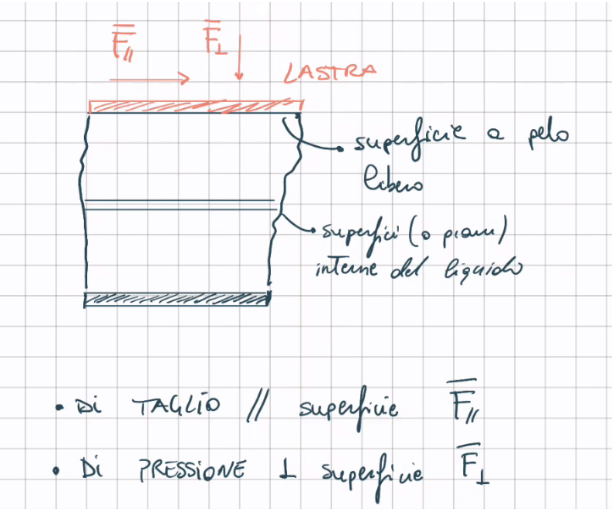 F// F⊥
LASTRA
superficie a pelo
libero
superfici (o piani)
interne del liquido
• Di TAGLIO // superficie F//
• Di PRESSIONE ⊥ superficie F⊥